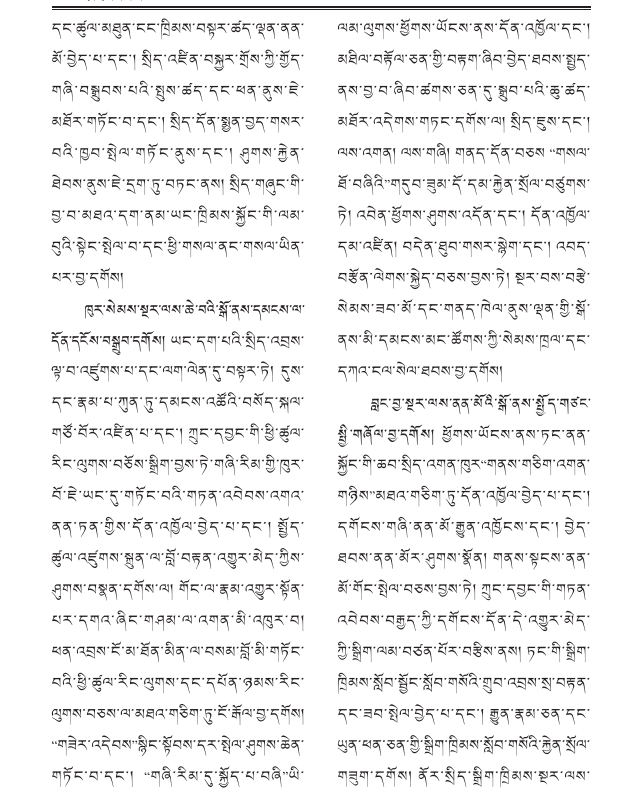 དང་ཚུལ་མཐུན་ངང་ཁྲིམས་བསྟར་ཚད་ལྡན་ནན་
མོ་བྱེད་པ་དང་། སྲིད་འཛིན་བསྐྱར་གྲོས་ཀྱི་གྱོད་
གཞི་བསྒྲུབས་པའི་སྤུས་ཚད་དང་ཕན་ནུས་ཇེ་
མཐོར་གཏོང་བ་དང་། སྲིད་དོན་སྨྱན་བྱད་གསར་
བའི་ཁྱབ་སྤེལ་གཏོང་ནུས་དང་། ཤུགས་རྐྱེན་
ཐེབས་ནུས་ཇེ་དྲག་ཏུ་བཏང་ནས། སྲིད་གཞུང་གི་
བྱ་བ་མཐའ་དག་ནམ་ཡང་ཁྲིམས་སྐྱོང་གི་ལམ་
བུའི་སྟེང་སྤེལ་བ་དང་ཕྱི་གསལ་ནང་གསལ་ཡིན་
པར་བྱ་དགོས།
ཁུར་སེམས་སྔར་ལས་ཆེ་བའི་སྒོ་ནས་དམངས་ལ་
དོན་དངོས་བསྒྲུབ་དགོས། ཡང་དག་པའི་སྲིད་འབྲས་
ལྟ་བ་འཛུགས་པ་དང་ལག་ལེན་དུ་བསྟར་ཏེ། དུས་
དང་རྣམ་པ་ཀུན་ཏུ་དམངས་འཚོའི་བསོད་སྐལ་
གཙོ་བོར་འཛིན་པ་དང་། ཀྲུང་དབྱང་གི་ཕྱི་ཚུལ་
རིང་ལུགས་བཅོས་སྒྲིག་བྱས་ཏེ་གཞི་རིམ་གྱི་ཁུར་
བོ་ཇེ་ཡང་དུ་གཏོང་བའི་གཏན་འབེབས་འགའ་
ནན་ཏན་གྱིས་དོན་འཁྱོལ་བྱེད་པ་དང་། སྤྱོད་
ཚུལ་འཛུགས་སྐྲུན་ལ་བློ་བརྟན་འགྱུར་མེད་ཀྱིས་
ཤུགས་བསྣན་དགོས་ལ། གོང་ལ་རྣམ་འགྱུར་སྟོན་
པར་དགའ་ཞིང་གཤམ་ལ་འགན་མི་འཁུར་བ།
ཕན་འབྲས་ངོ་མ་ཐོན་མིན་ལ་བསམ་བློ་མི་གཏོང་
བའི་ཕྱི་ཚུལ་རིང་ལུགས་དང་དཔོན་ཉམས་རིང་
ལུགས་བཅས་ལ་མཐའ་གཅིག་ཏུ་ངོ་རྒོལ་བྱ་དགོས།
“གཟེར་འདེབས”སྙིང་སྟོབས་དར་སྤེལ་ཤུགས་ཆེན་
གཏོང་བ་དང་། “གཞི་རིམ་དུ་སྐྱོད་པ་བཞི”ཡི་
ལམ་ལུགས་ཕྱོགས་ཡོངས་ནས་དོན་འཁྱོལ་དང་།
མཐིལ་བརྟོལ་ཅན་གྱི་བརྟག་ཞིབ་བྱེད་ཐབས་སྤྱད་
ནས་བྱ་བ་ཞིབ་ཚགས་ཅན་དུ་སྒྲུབ་པའི་ཆུ་ཚད་
མཐོར་འདེགས་གཏང་དགོས་ལ། སྲིད་ཇུས་དང་།
ལས་འགན། ལས་གཞི། གནད་དོན་བཅས་“གསལ་
ཐོ་བཞིའི”གདུབ་ཟུམ་དོ་དམ་རྐྱེན་སྲོལ་བཙུགས་
ཏེ། འབེན་ཕྱོགས་ཤུགས་འདོན་དང་། དོན་འཁྱོལ་
དམ་འཛིན། བདེན་ཐུབ་གསར་སྙེག་དང་། འབད་
བརྩོན་ལེགས་སྐྱེད་བཅས་བྱས་ཏེ། སྔར་བས་བརྩེ་
སེམས་ཟབ་མོ་དང་གནད་ཁེལ་ནུས་ལྡན་གྱི་སྒོ་
ནས་མི་དམངས་མང་ཚོགས་ཀྱི་སེམས་ཁྲལ་དང་
དཀའ་ངལ་སེལ་ཐབས་བྱ་དགོས།
བླང་བྱ་སྔར་ལས་ནན་མོའི་སྒོ་ནས་སྤྱོད་གཙང་
སྤྱི་གཞོལ་བྱ་དགོས། ཕྱོགས་ཡོངས་ནས་ཏང་ནན་
སྐྱོང་གི་ཆབ་སྲིད་འགན་ཁུར་“གནས་གཅིག་འགན་
གཉིས”མཐའ་གཅིག་ཏུ་དོན་འཁྱོལ་བྱེད་པ་དང་།
དགོངས་གཞི་ནན་མོ་རྒྱུན་འཁྱོངས་དང་། བྱེད་
ཐབས་ནན་མོར་ཤུགས་སྣོན། གནས་སྟངས་ནན་
མོ་གོང་སྤེལ་བཅས་བྱས་ཏེ། ཀྲུང་དབྱང་གི་གཏན་
འབེབས་བརྒྱད་ཀྱི་དགོངས་དོན་དེ་འགྱུར་མེད་
ཀྱི་སྒྲིག་ལམ་བཙན་པོར་བརྩིས་ནས། ཏང་གི་སྒྲིག་
ཁྲིམས་སློབ་སྦྱོང་སློབ་གསོའི་གྲུབ་འབྲས་སྲ་བརྟན་
དང་ཟབ་སྤེལ་བྱེད་པ་དང་། རྒྱུན་རྣམ་ཅན་དང་
ཡུན་ཕན་ཅན་གྱི་སྒྲིག་ཁྲིམས་སློབ་གསོའི་རྐྱེན་སྲོལ་
གཟུག་དགོས། ནོར་སྲིད་སྒྲིག་ཁྲིམས་སྔར་ལས་